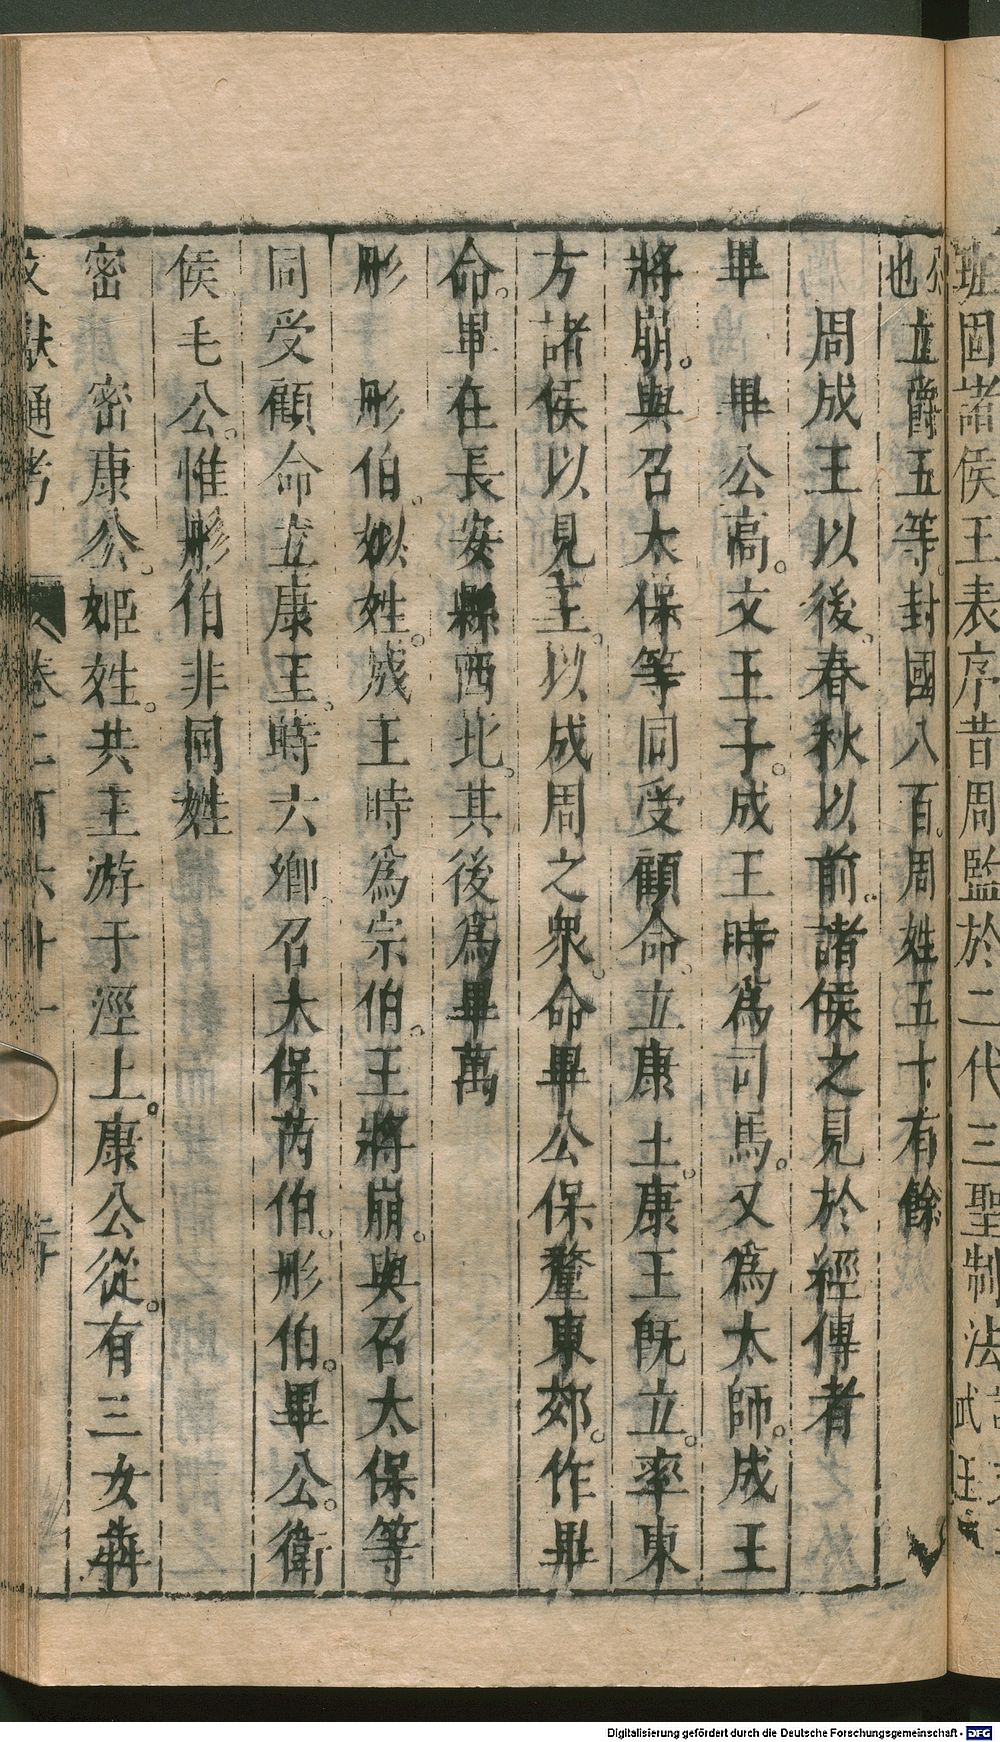 班固諸侯王表序昔周監於二代三聖制法
武王
也立爵五等。封國八百。周姓五十有餘
周成王以後。春秋以前。諸侯之見於經傳者
畢　畢公高。文王子。成王時爲司馬。又爲太師。成王
將崩。與召太保等同受顧命。立康土。康王旣立。率東
方諸侯以見主。以成周之衆。命畢公保釐東郊。作畢
命。畢在長安縣西北。其後爲畢萬
彤　彤伯。姒姓。成王時爲宗伯。王將崩。與召太保等
同受顧命立康王。時六卿。召太保芮伯。彤伯。畢公。衛
侯毛公。惟彤伯非同姓
密　密康公。姬姓。共王游于涇上。康公從。有三女犇
文獻通考　卷二百六十一